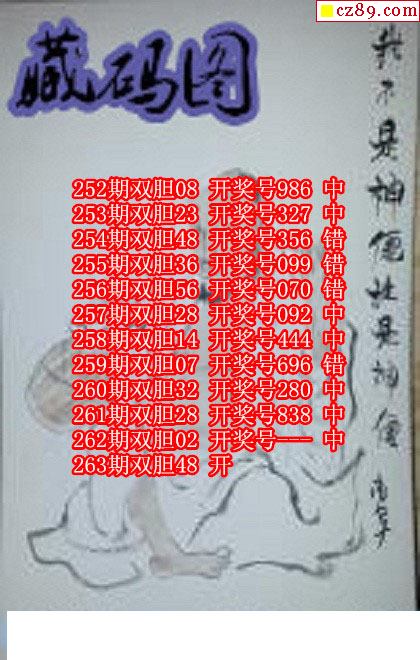 cz89.com
藏码图
我不是神仙谁是神仙
252期双胆08 开奖号986 中
253期双胆23 开奖号327 中
254期双胆48 开奖号356 错
255期双胆36 开奖号099 错
256期双胆56 开奖号070 错
257期双胆28 开奖号092 中
258期双胆14 开奖号444 中
259期双胆07 开奖号696 错
260期双胆32 开奖号280 中
261期双胆28 开奖号838 中
262期双胆02 开奖号--- 中
263期双胆48 开